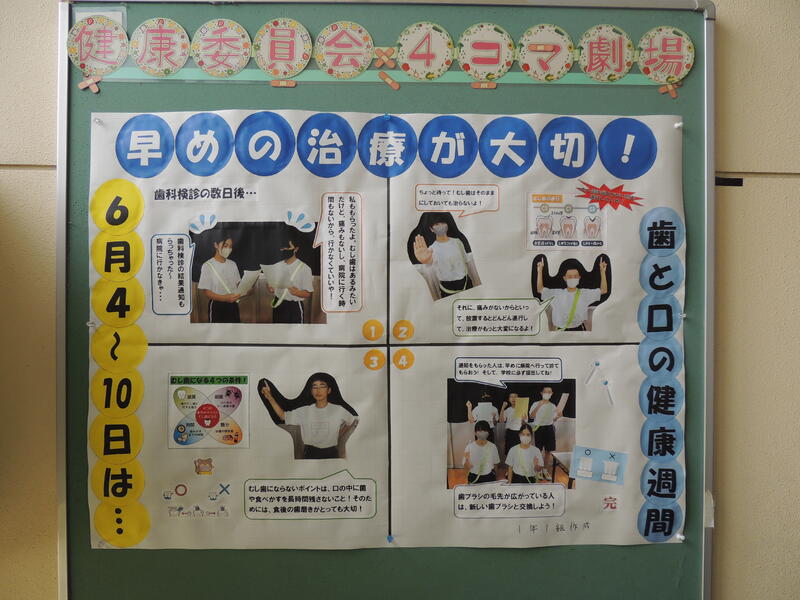 健康委員会4コマ劇場
早めの治療が大切！
6月4～10日は…
歯と口の健康週間
歯科検診の数日後…
私ももらったよ。むし歯はあるみたい
だけど、痛みもないし、病院に行く時
間もないから、行かなくていいや！
歯科検診の結果通知も
らっちゃった～
病院に行かなきゃ・・・
1
ちょっと待って！むし歯はそのまま
にしておいても治らないよ！
むし歯の進行
それに、痛みがないからといっ
て、放置するとどんどん進行し
て、治療がもっと大変になるよ！
2
3
むし歯になる4つの条件！
歯質
細菌
時間
糖分
むし歯にならないポイントは、口の中に菌
や食べかすを長時間残さないこと！そのた
めには、食後の歯磨きがとっても大切！
4
通知をもらった人は、早めに病院へ行って診て
もらおう！そして、学校に必ず提出してね！
歯ブラシの毛先が広がっている人
は、新しい歯ブラシと交換しよう！
完
1年1組作成